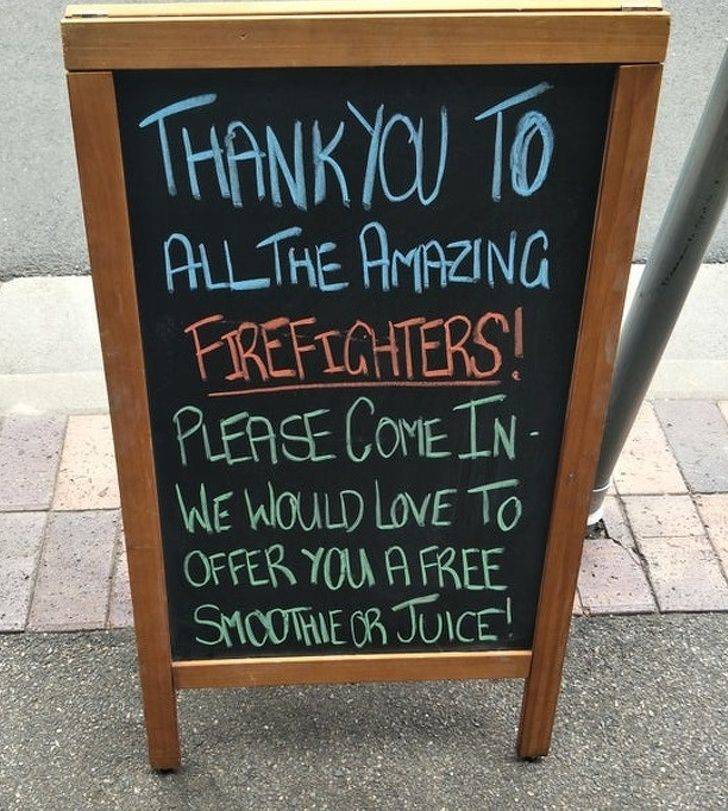 THANK YOU TO
ALL THE AMAZING
FIREFIGHTERS!
PLEASE COME IN -
WE WOULD LOVE TO
OFFER YOU A FREE
SMOOTHIE OR JUICE!